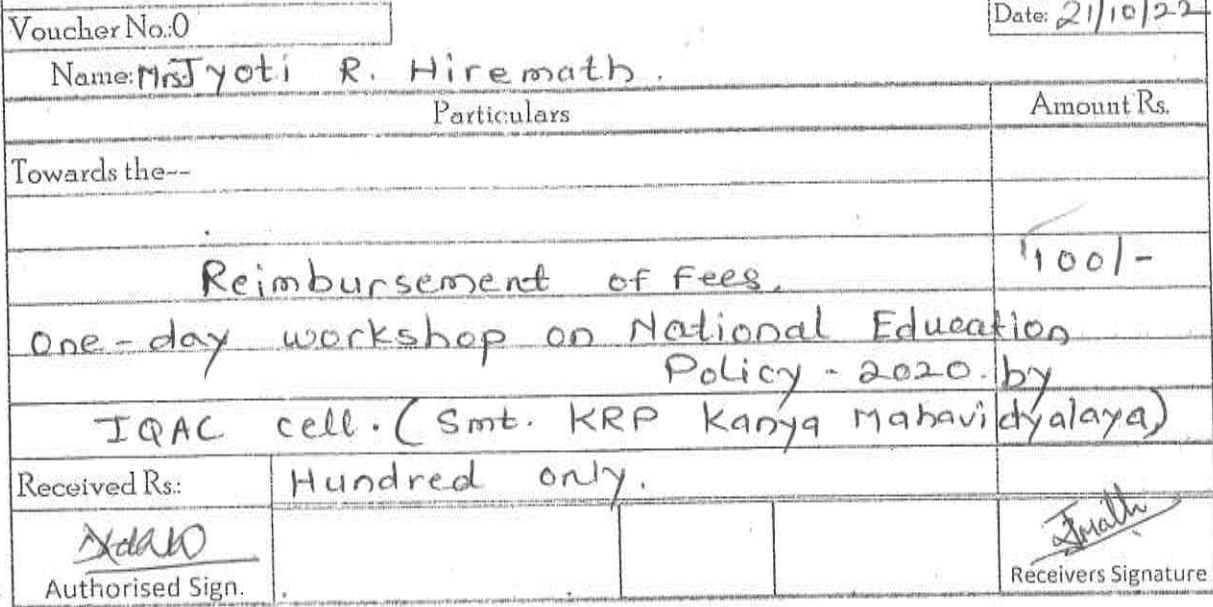 Voucher No.:0
Date: 21/10/22
Name: Mrs Jyoti R. Hiremath.
Particulars
Amount Rs.
Towards the--
Reimbursement of Fees. 100/-
One-day workshop on National Education
Policy - 2020. by
IQAC cell. (Smt. KRP Kanya Mahavidyalaya)
Received Rs.: Hundred only.
Authorised Sign.
Receivers Signature